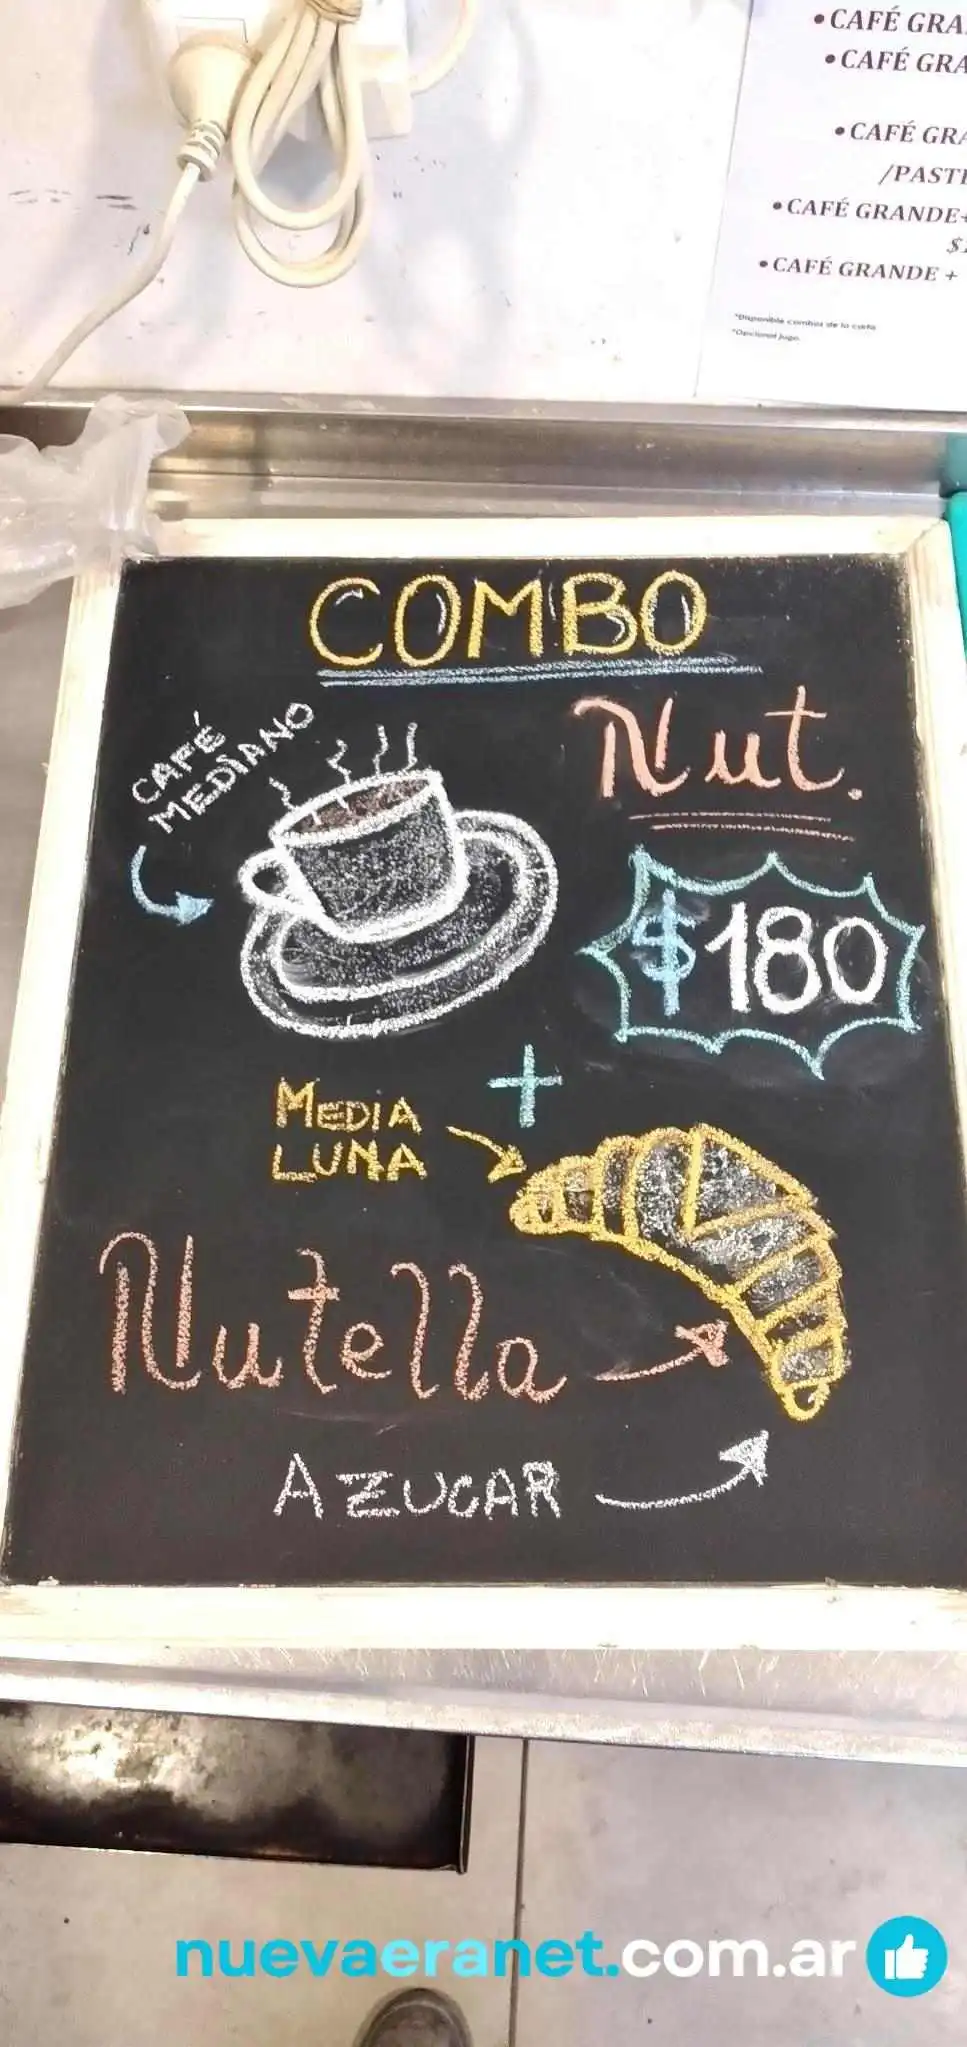 •CAFÉ
•CAFÉ
•CAFÉ
•CAFÉ GRANDE+
•CAFÉ GRANDE +
*Disponible combos de la carta
*Opcional jugo.
COMBO
Nut.
CAFÉ
MEDIANO
$180
+
MEDIA
LUNA
Nutella
AZUCAR
nuevaeranet.com.ar